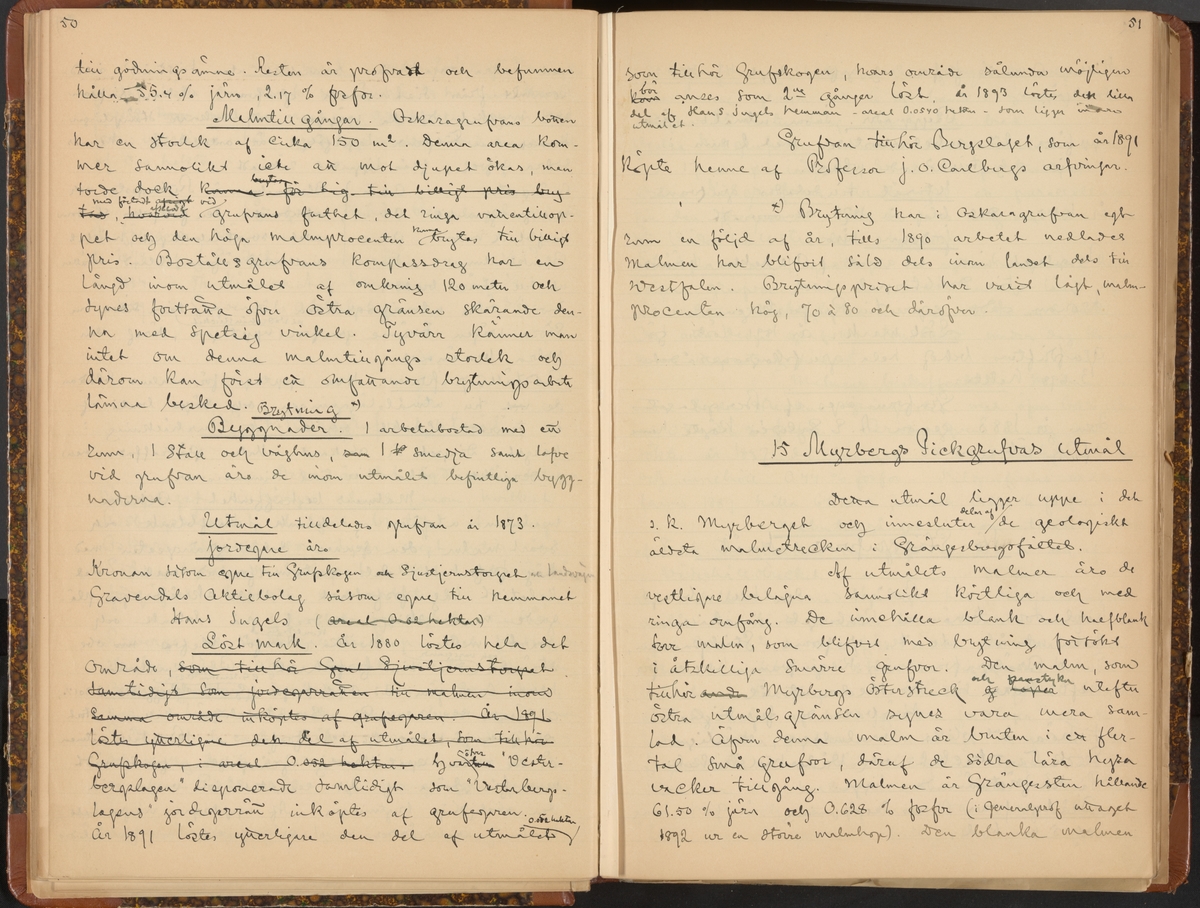 50
till gödningsämne. Resten är profvadt och befunnen
hålla 55.4 % järn, 2.17 % fosfor.
Malmtillgångar. Oskaragrufvans botten
har en storlek af cirka 150 m². Denna area kom-
mer sannolikt icke att mot djupet ökas, men
torde dock kunna för hig. till billigt pris bry-
tas, grufvans fasthet, det ringa vattentillop-
pet och den höga malmprocenten kunna brytas till billigt
pris. Boställsgrufvans kompassdrag har en
längd inom utmålet af omkring 120 meter och
synes fortsätta öfver östra gränsen skärande den-
na med spetsig vinkel. Tyvärr känner man
intet om denna malmtillgångs storlek och
därom kan först ett omfattande brytningsarbete
lämna besked. Brytning *)
Byggnader. 1 arbetarbostad med ett
rum, 1 stall och våghus, 1 smedja samt lafve
vid grufvan äro de inom utmålet befintliga bygg-
naderna.
Utmål tilldelades grufvan år 1873.
Jordegare äro
Kronan såsom egare till Grufskogen och Sjustjernstorpet
Gravendals Aktiebolag såsom egare till hemmanet
Hans Ingels (areal 0.52 hektar)
Löst mark. År 1880 löstes hela det
område, som tillhör Gamt Sjustjernstorpet
samtidigt som jordegarrätten till malmen inom
samma område inköptes af grufegaren. År 1891
löstes ytterligare den del af utmålet, som tillhör
Grufskogen, i areal 0.052 hektar. hvaröfver Vester-
bergslagen disponerade samtidigt som "Vesterbergs-
lagens" jordegarrätt inköptes af grufegaren.
År 1891 löstes ytterligare den del af utmålet 0.052 hektar
51
som tillhör Grufskogen, hvars område sålunda möjligen
bör anses som 2ne gånger löst. År 1893 löstes den lilla
del af Hans Ingels hemman - areal 0.0540 hektar - som ligger inom
utmålet.
Grufvan tillhör Bergslaget, som år 1891
köpte henne af Professor J. O. Carlbergs arfvingar.
*) Brytning har i Oskaragrufvan egt
rum en följd af år, tills 1890 arbetet nedlades
Malmen har blifvit såld dels inom landet dels till
Westfalen. Brytningspriset har varit lågt, malm-
procenten hög, 70 à 80 och däröfver.
15 Myrbergs Pickgrufvas utmål
Detta utmål ligger uppe i det
s. k. Myrberget och innesluter delar af de geologiskt
äldsta malmstrecken i Grängesbergsfältet.
Af utmålets malmer äro de
vestligare belägna sannolikt körtliga och med
ringa omfång. De innehålla blank och halfblank
torr malm, som blifvit med brytning försökt
i åtskilliga smärre grufvor. Den malm, som
tillhör Myrbergs Österstreck och utefter
östra utmålsgränsen synes vara mera sam-
lad. Äfven denna malm är bruten i en fler-
tal små grufvor, däraf de södra lära hysa
vacker tillgång. Malmen är Grängersten hållande
61.50 % järn och 0.628 % fosfor (i generalprof uttaget
1892 ur en större malmhop). Den blanka malmen